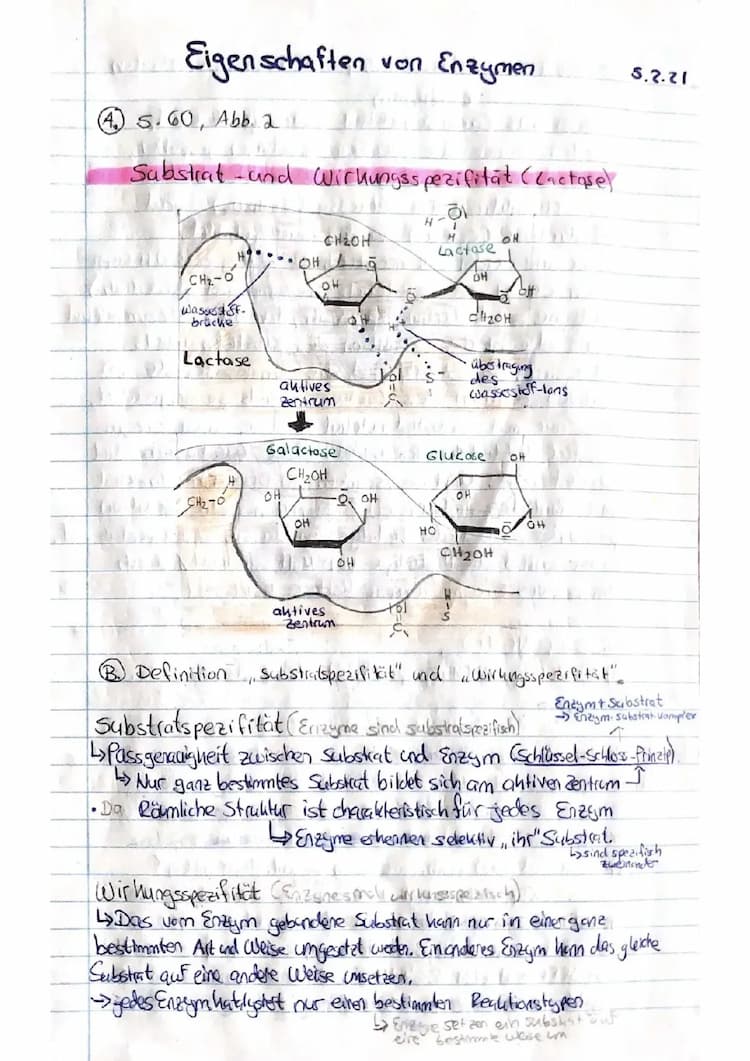 Eigenschaften von Enzymen
5.2.21
A. S. 60, Abb. 2
Substrat- und Wirkungsspezifität (Lactase)
H-O
H
Lactose
OH
CH2OH
H
OH
O
OH
CH2-O
OH
OH
O
O
OH
CH2OH
Wasserstoff-
brücke
H
Lactase
S-
Übertragung
des
Wasserstoff-Ions
aktives
Zentrum
O
C
Galactose
Glukose
OH
CH2OH
H
CH2-O
OH
O
OH
OH
OH
HO
O
OH
CH2OH
OH
aktives
Zentrum
O
C
H
S
B. Definition „Substratspezifität" und „Wirkungsspezifität".
Enzym + Substrat
→ Enzym-Substrat-Komplex
Substratspezifität (Enzyme sind substratspezifisch)
↳ Passgenauigkeit zwischen Substrat und Enzym (Schlüssel-Schloss-Prinzip)
↳ Nur ganz bestimmtes Substrat bildet sich am aktiven Zentrum
• Da Räumliche Struktur ist charakteristisch für jedes Enzym
↳ Enzyme erkennen selektiv „ihr" Substrat.
↳ sind spezifisch
zueinander
Wirkungsspezifität (Enzyme sind wirkungsspezisch)
↳ Das vom Enzym gebundene Substrat kann nur in einer ganz
bestimmten Art und Weise umgesetzt werden. Ein anderes Enzym kann das gleiche
Substrat auf eine andere Weise umsetzen.
→ jedes Enzym katalysiert nur einen bestimmten Reaktionstypen
↳ Enzyme setzen ein Substrat auf
eine bestimmte Weise um